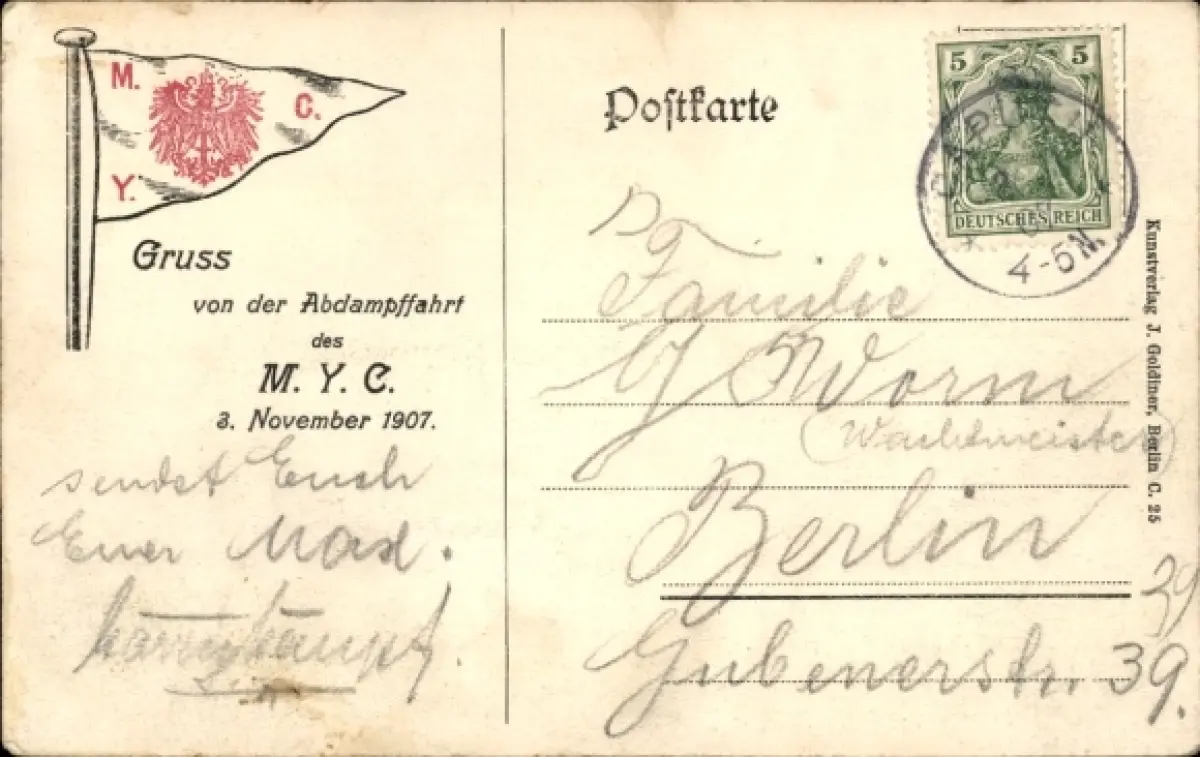 M.
C.
Y.
Gruss
von der Abdampffahrt
des
M. Y. C.
3. November 1907.
sendet Euch
Euer Max.
Postkarte
5 5
DEUTSCHES REICH
4-5N.
Familie
G Worm
(Wachtmeister)
Berlin
Gubenerstr. 39.
Kunstverlag J. Goldiner, Berlin C. 25